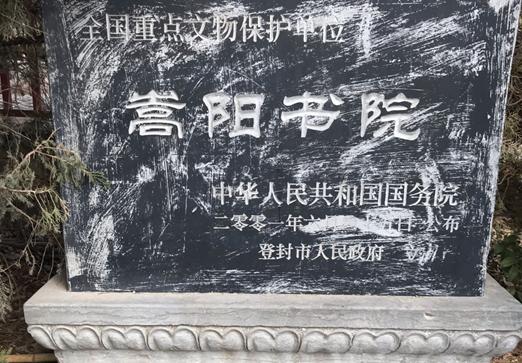 全国重点文物保护单位
嵩阳书院
中华人民共和国国务院
二零零 年六月 日 公布
登封市人民政府